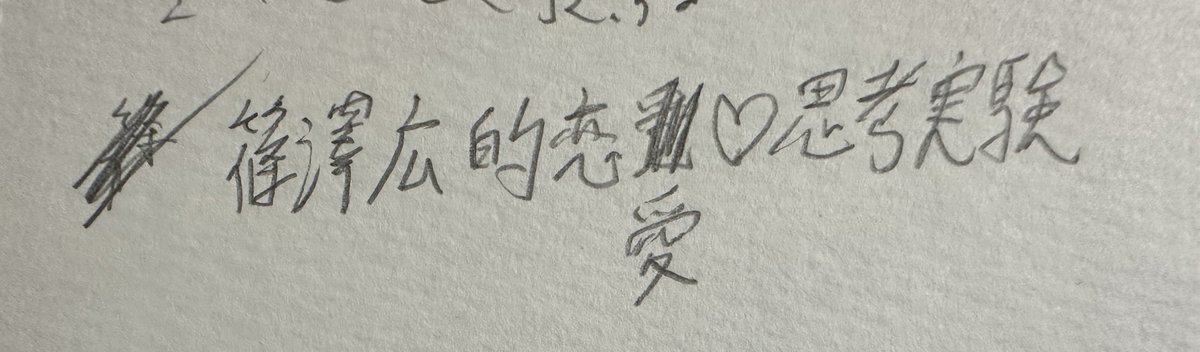 篠澤広的恋愛♡思考実験